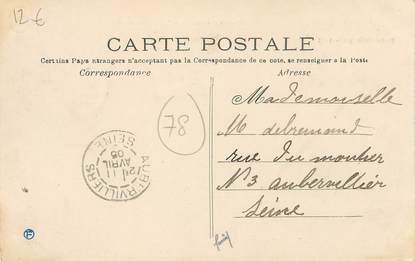 12 €
CARTE POSTALE
Certains Pays étrangers n'acceptant pas la Correspondance de ce côté, se renseigner à la Poste
Correspondance
Adresse
Mademoiselle
M debremand
rue du moutier
N°3 aubervillier
Seine
78
AUBERVILLIERS
11
AVRIL
05
SEINE